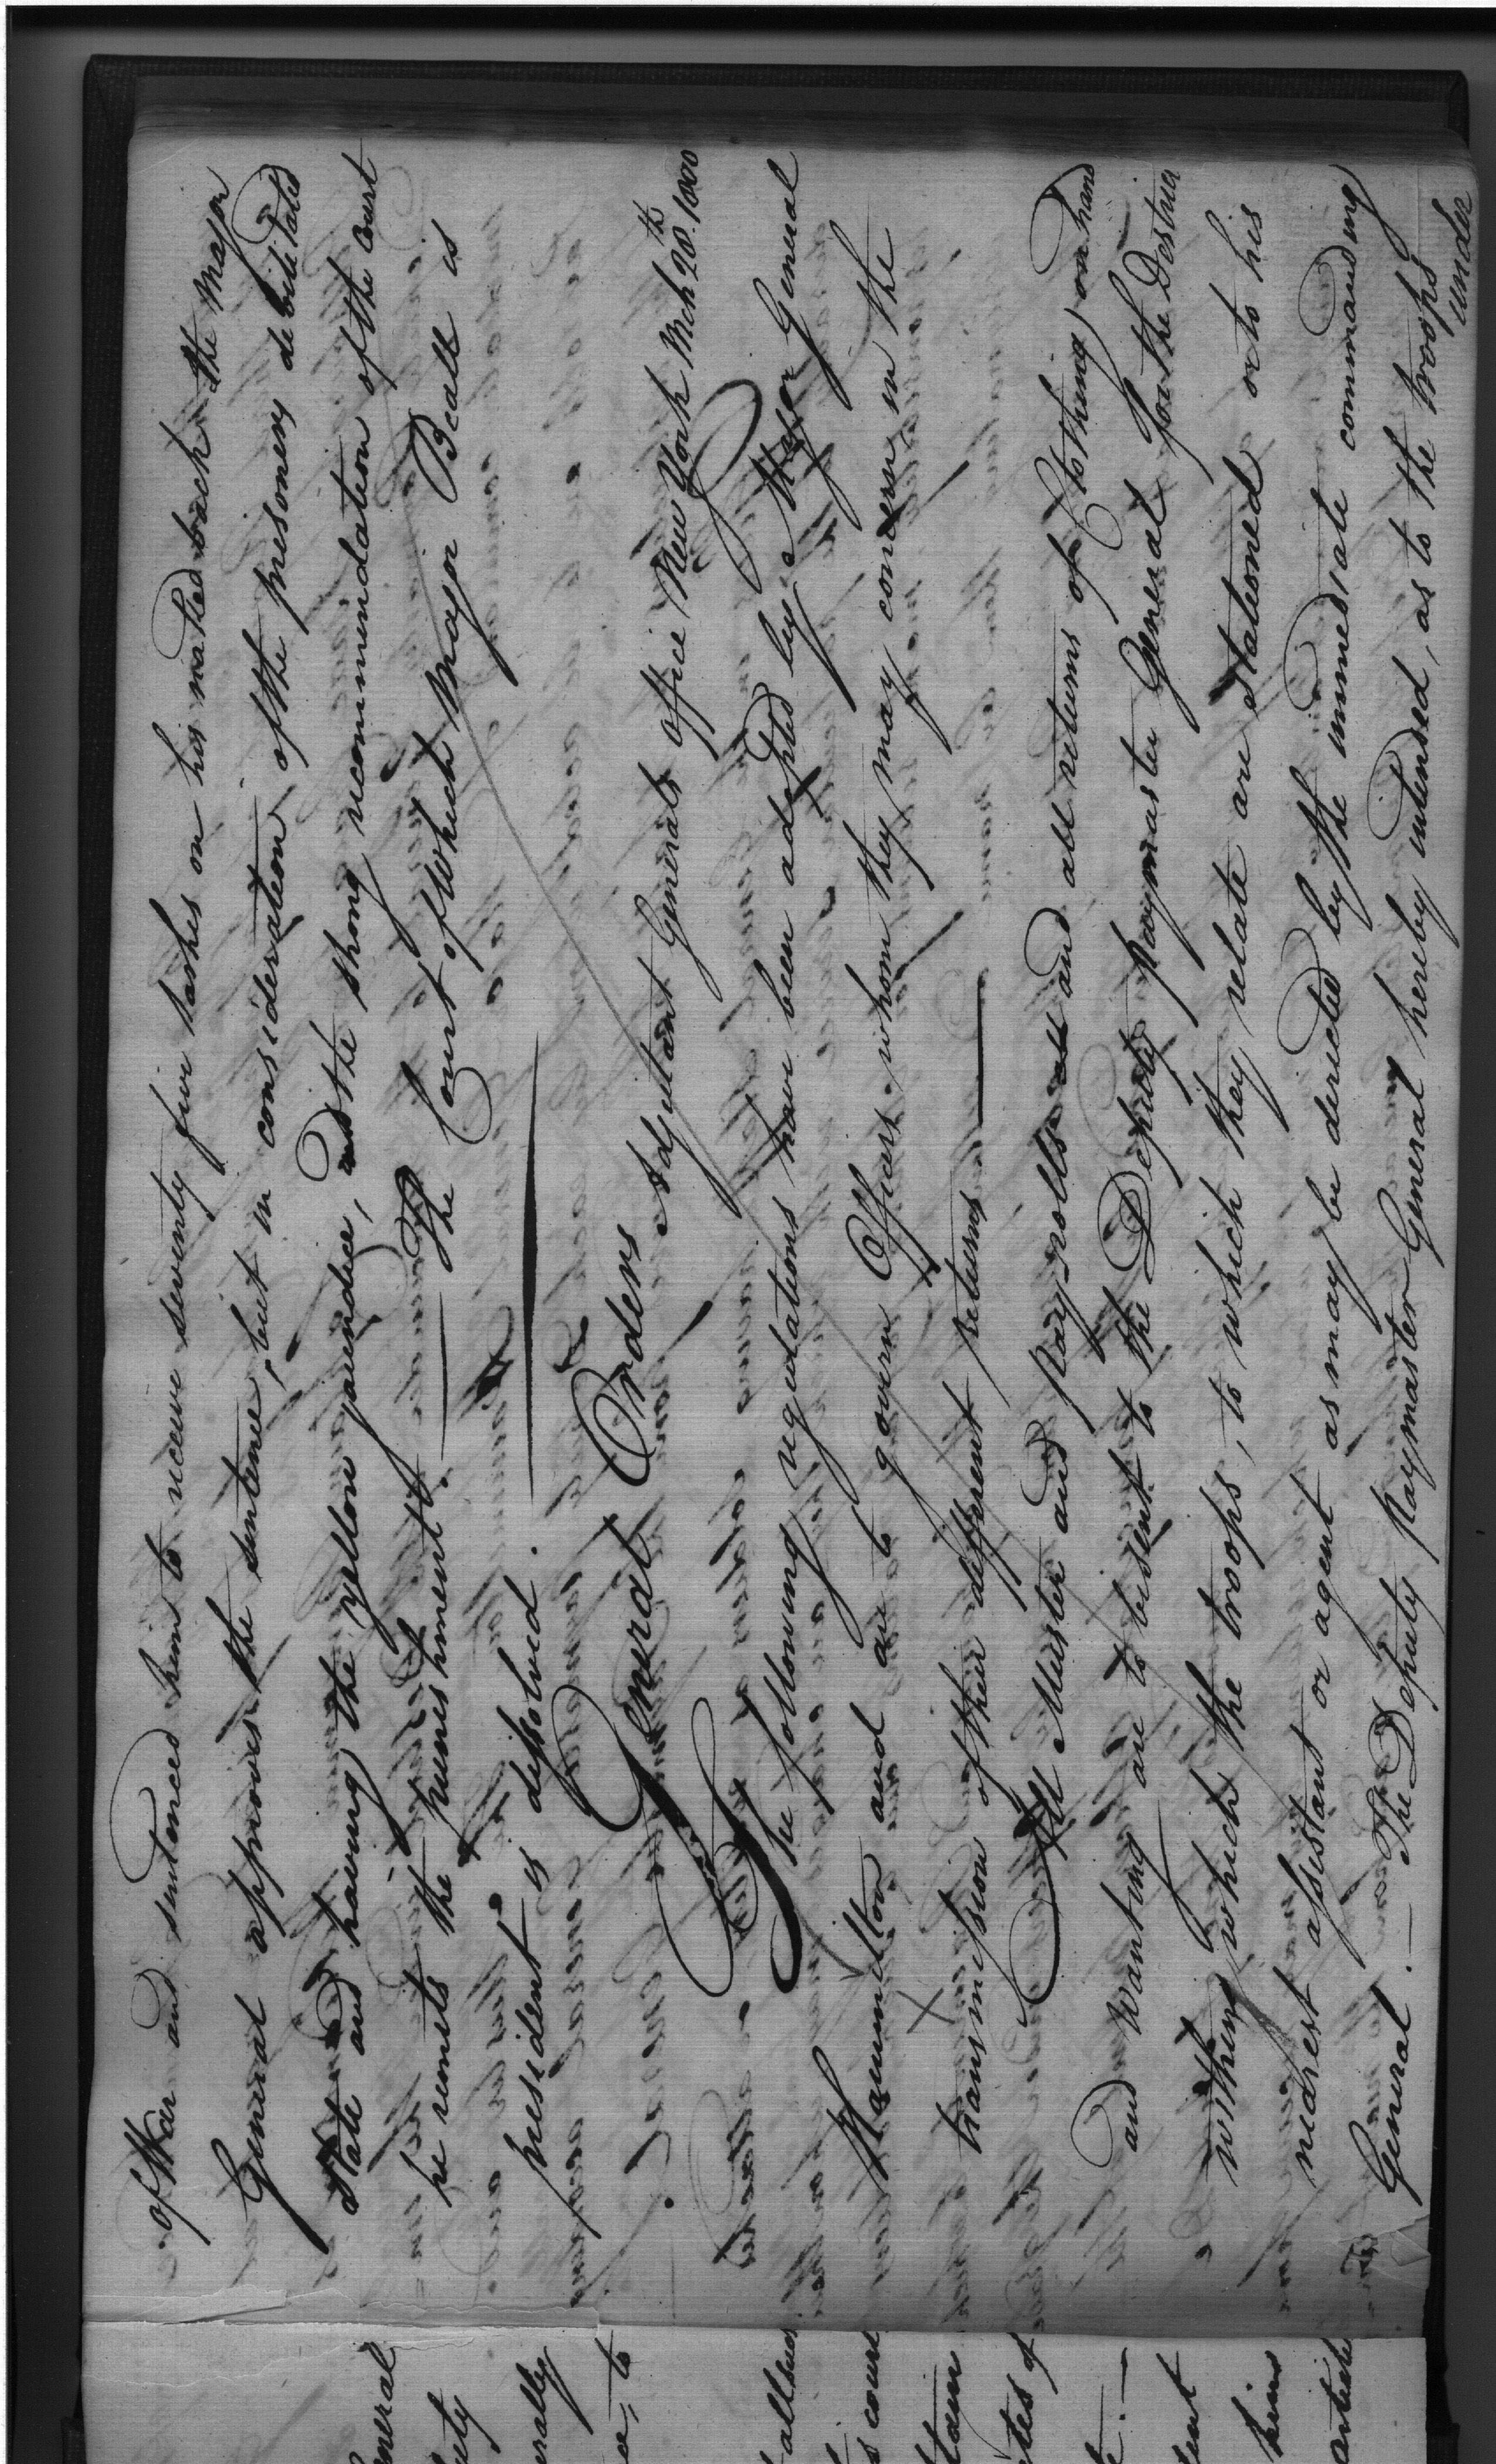 of War and sentenced him to receive seventy five lashes on his naked back the Major
General approves the sentence, but in consideration of the prisoners debilitated
State and having the yellow jaundice, and the strong recommendation of the Court
he remits the punishment. — The Court of which Major Beall is
president is dissolved.
General Orders Adjutant Generals office New York Mch 20th. 1800
The following regulations have been adopted by Major General
Hammilton and are to govern Officers whom they may concern in the
transmission of their different returns
All Muster and Pay-rolls all and all returns of Clothing on hand
and wanting are to be sent to the Deputy Paymaster General for the District
within which the troops, to which they relate are stationed or to his
nearest assistant or agent as may be directed by the immediate commanding
General. — The Deputy Paymaster General hereby intended, as to the troops
under
neral
uty
erally
ce, to
s court
tain
tes of
dent
him
article